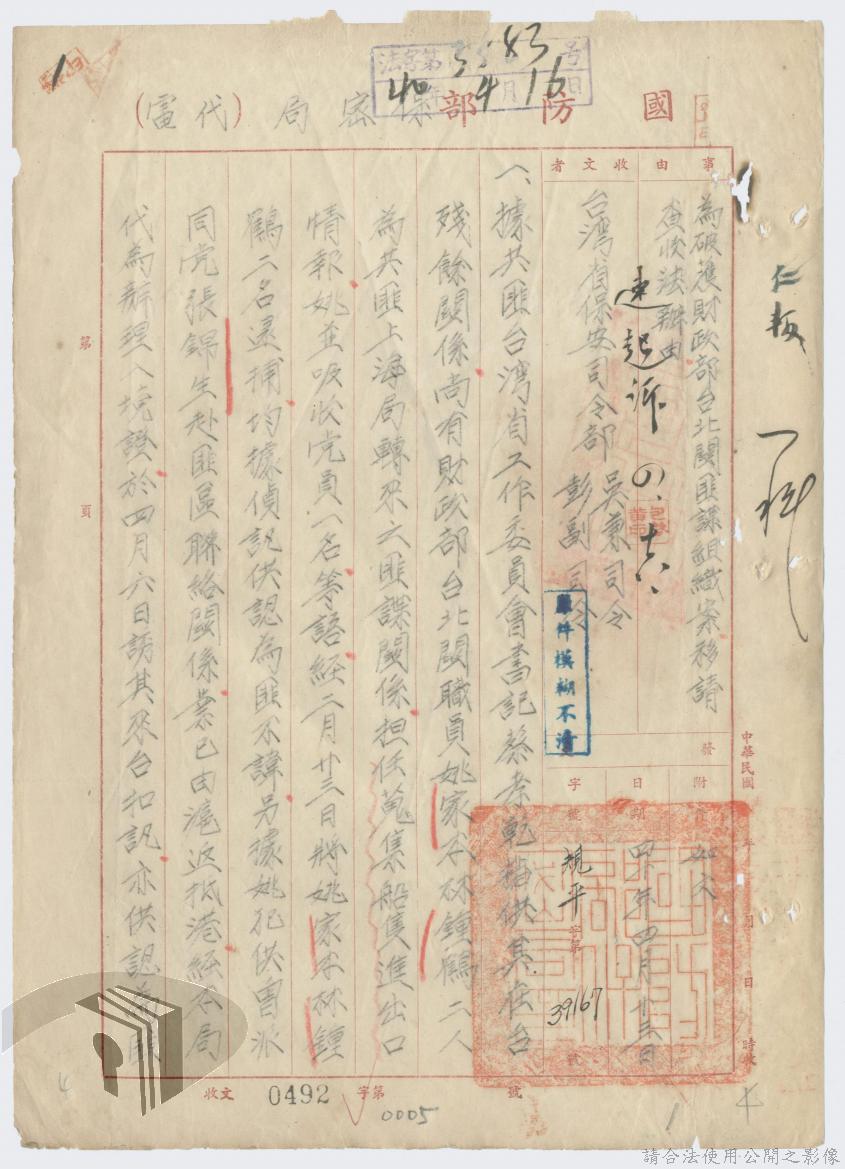 法字第3583号
40年4月16日
國防部保密局(代電)
事由
收文者
為破獲財政部台北關匪諜組織案移請
查收法辦由
台灣省保安司令部
吳兼司令
彭副司令
速起訴
仁放
一、據共匪台灣省工作委員會書記蔡孝乾指供其在台
殘餘關係尚有財政部台北關職員姚家本林鍾鶴二人
為共匪上海局轉來之匪諜關係担任蒐集船隻進出口
情報姚並吸收党員一名等語經二月廿三日將姚家本林鍾
鶴二名逮捕均據偵訊供認為匪不諱另據姚犯供曾派
同党張錦生赴匪區聯絡關係業已由滬返抵港經本局
代為辦理入境證於四月六日誘其來台扣訊亦供認為匪
原件模糊不清
發
附件
如文
日期
四十年四月十三日
字號
規平字第39167號
中華民國 年 月 日 時收
第 頁
收文 字第0492號
0005
請合法使用公開之影像